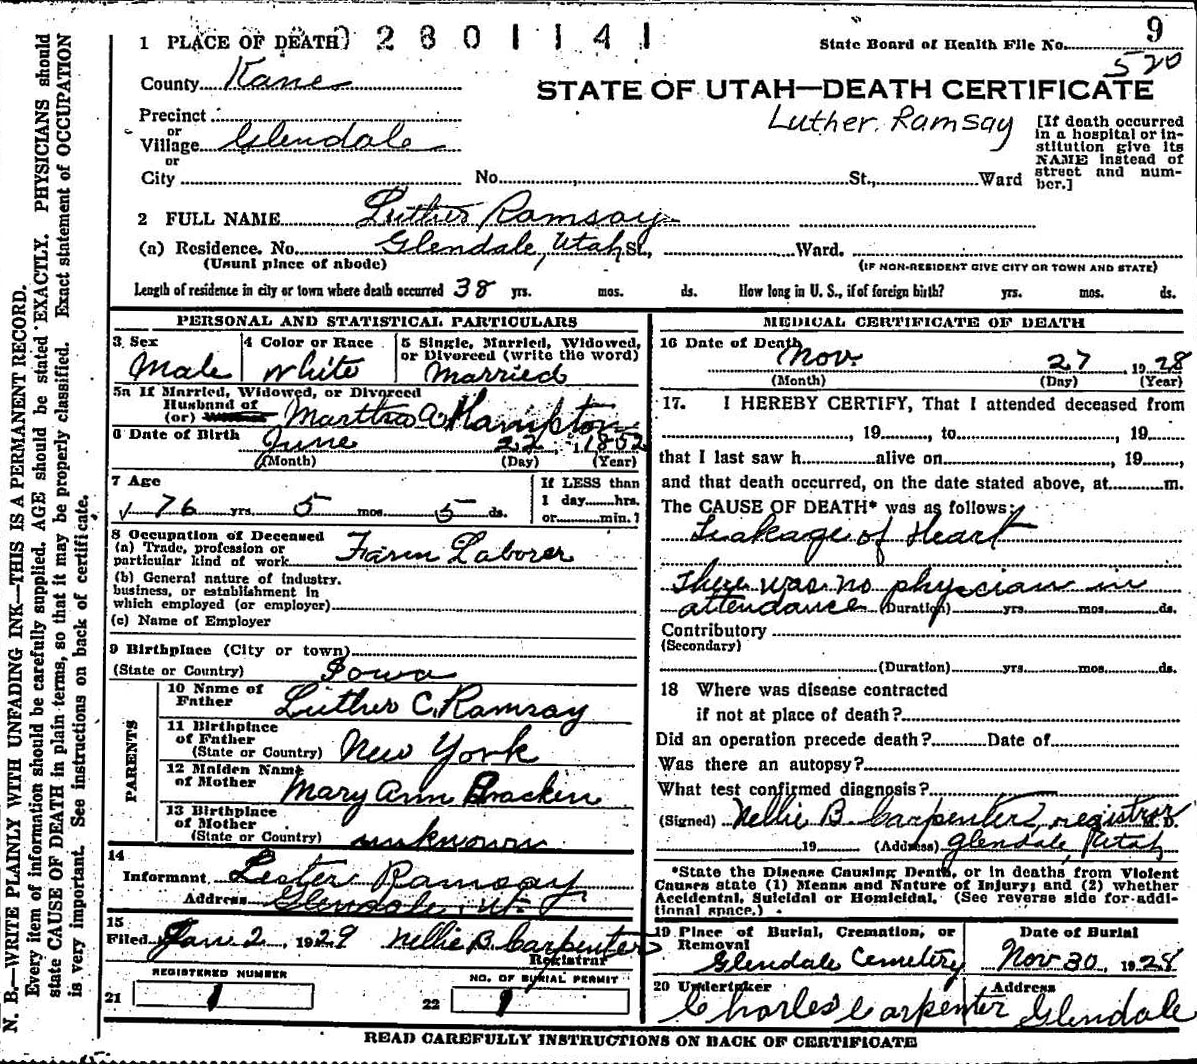 N. B.—WRITE PLAINLY WITH UNFADING INK—THIS IS A PERMANENT RECORD.
Every item of information should be carefully supplied. AGE should be stated EXACTLY. PHYSICIANS should
state CAUSE OF DEATH in plain terms, so that it may be properly classified. Exact statement of OCCUPATION
is very important. See instructions on back of certificate.
1 PLACE OF DEATH 0 2 8 0 1 1 4 1
State Board of Health File No. 9
520
County Kane
STATE OF UTAH—DEATH CERTIFICATE
Luther Ramsay
[If death occurred
in a hospital or in-
stitution give its
NAME instead of
street and num-
ber.]
Precinct
or
Village Glendale
or
City No. St., Ward
2 FULL NAME Luther Ramsay
(a) Residence. No. Glendale, Utah St., Ward.
(Usual place of abode) (IF NON-RESIDENT GIVE CITY OR TOWN AND STATE)
Length of residence in city or town where death occurred 38 yrs. mos. ds. How long in U. S., if of foreign birth? yrs. mos. ds.
PERSONAL AND STATISTICAL PARTICULARS
3 Sex
Male
4 Color or Race
white
5 Single, Married, Widowed,
or Divorced (write the word)
Married
5a If Married, Widowed, or Divorced
Husband of
(or) Martha A Hampton
6 Date of Birth June 22, 1852
(Month) (Day) (Year)
7 Age
76 yrs. 5 mos. 5 ds.
If LESS than
1 day hrs.
or min.
8 Occupation of Deceased
(a) Trade, profession or
particular kind of work Farm Laborer
(b) General nature of industry.
business, or establishment in
which employed (or employer)
(c) Name of Employer
9 Birthplace (City or town)
(State or Country) Iowa
PARENTS
10 Name of
Father Luther C. Ramsay
11 Birthplace
of Father
(State or Country) New York
12 Maiden Name
of Mother Mary Ann Bracken
13 Birthplace
of Mother
(State or Country) unknown
14
Informant Lester Ramsay
Address Glendale, Ut.
15
Filed Jan 2, 1929 Nellie B. Carpenter
Registrar
REGISTERED NUMBER
21 1
NO. OF BURIAL PERMIT
22 1
MEDICAL CERTIFICATE OF DEATH
16 Date of Death
Nov. 27, 1928
(Month) (Day) (Year)
17. I HEREBY CERTIFY, That I attended deceased from
, 19 , to , 19
that I last saw h alive on , 19 ,
and that death occurred, on the date stated above, at m.
The CAUSE OF DEATH* was as follows:
Leakage of Heart
There was no physician in
attendance (Duration) yrs. mos. ds.
Contributory
(Secondary)
(Duration) yrs. mos. ds.
18 Where was disease contracted
if not at place of death?
Did an operation precede death? Date of
Was there an autopsy?
What test confirmed diagnosis?
(Signed) Nellie B. Carpenter, registrar M.D.
19 (Address) Glendale, Utah
*State the Disease Causing Death, or in deaths from Violent
Causes state (1) Means and Nature of Injury; and (2) whether
Accidental, Suicidal or Homicidal. (See reverse side for addi-
tional space.)
19 Place of Burial, Cremation, or
Removal
Glendale Cemetery
Date of Burial
Nov 30, 1928
20 Undertaker
Charles Carpenter
Address
Glendale
READ CAREFULLY INSTRUCTIONS ON BACK OF CERTIFICATE